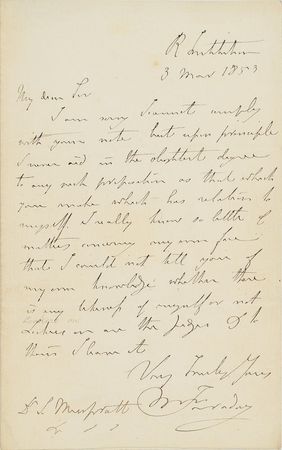 R Institution
3 Mar 1853
My dear Sir
I am sorry I cannot comply
with your note but upon principle
I never aid in the slightest degree
to any such proposition as that which
you make which has relation to
myself. I really know so little of
matters concerning my own face
that I could not tell you of
my own knowledge whether there
is any likeness of myself or not
are the judges & to
them I leave it
Very Truly Yours
M Faraday
Dr S Muspratt